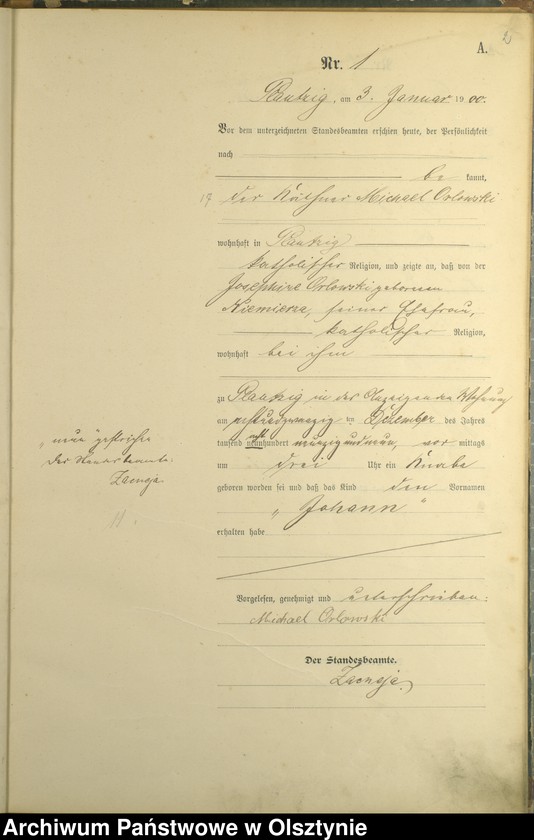 A.
Nr. 1
Plautzig, am 3. Januar 1900.
Vor dem unterzeichneten Standesbeamten erschien heute, der Persönlichkeit
nach
be kannt,
der Käthner Michael Orlowski
wohnhaft in Plautzig
katholischer Religion, und zeigte an, daß von der
Josephine Orlowski geborenen
seiner Ehefrau,
katholischer Religion,
wohnhaft bei ihm
zu Plautzig in der Wohnung
am achtundzwanzig ten Dezember des Jahres
tausend neunhundert acht neunzigundneun, vor mittags
um drei Uhr ein Knabe
geboren worden sei und daß das Kind den Vornamen
„Johann“
erhalten habe
„neun“ gestrichen
Der Standesbeamte.
11.
Vorgelesen, genehmigt und unterschrieben:
Michael Orlowski
Der Standesbeamte.
Archiwum Państwowe w Olsztynie